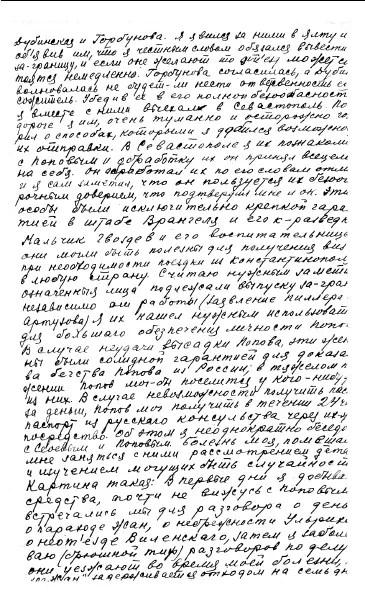 Дубинская и Горбунова. Я явился за ними в Ялту и
об'явив им, что я честным словом обязался вывезти
за-границу, и если они желают то от'езд может со
тояться немедленно. Горбунова согласилась, а Дуби
волновалась не будет-ли нести ответственность ее
сожитель. Убедив её в его полной безопасности
я вместе с ними выехал в Севастополь. По
дороге я им, очень туманно и осторожно го-
рил о способах, которыми я добился возможно
их отправки. В Севастополе я их познаком
с Поповым и обработку их он принял всецело
на себя. Он обработал их по его словам отли
и я сам заметил, что он пользуется их безог
рочным доверием, что подтвердил мне и он. Эти
особы были исключительно крепкой гара
тией в штабе Врангеля и его к-разведк
Мальчик Гвоздев и его воспитательниц
они могли быть полезны для получения виз
при необходимости поездки из Константинопол
в любую страну. Считаю нужным заметить
означенныя лица подлежали выпуску за-гран
независимо от работы (заявление Пиллера
Артузова). Я их нашел нужным использоват
для большаго обезпечения личности Попо-
В случае неудачи высадки Попова, эти жен
ны были солидной гарантией для доказа
ва бегства Попова из России; в тяжелом п
жении Попов мог-бы поселится у кого-нибу
из них. В случае невозможности получить
за деньги, Попов мог получить в течении 24 ч.
паспорт из русскаго консульства через их-
посредство. Об этом я неоднократно беседо
и Поповым. Болезнь моя, помешал
мне заняться с ними рассмотрением дета
и изучением могущих быть случайносте
Картина такая: В первые дни я доставал
средства, почти не вижусь с Поповым
встречались мы для разговора о день
о пароходе Жан, о небрежности Ульриха
о неот'езде Виленского, затем я заболе
ваю (брюшной тиф) разговоров по делу
они уезжают во время моей болезни,
"Жан" задерживается отходом на семь дн